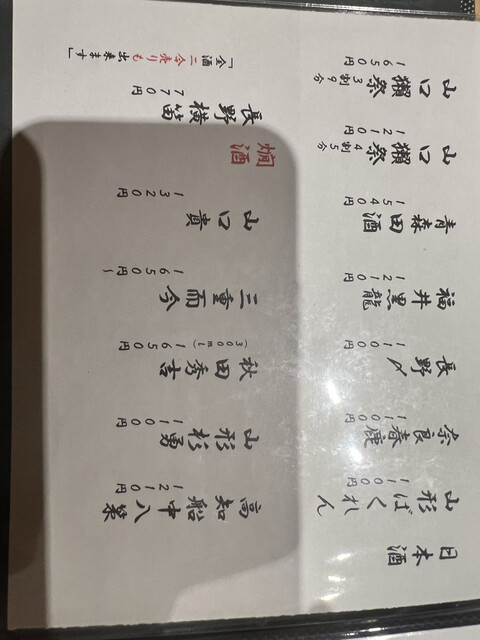 日本酒
山形ばくれん
1100円
奈良春鹿
1100円
長野〆
1100円
福井黒龍
1210円
青森田酒
1540円
山口獺祭
4割5分
1210円
山口獺祭
3割9分
1650円
高知船中八策
1210円
山形杉勇
1100円
秋田秀吉
(300ml)1650円
三重而今
1650円~
山口貴
1320円
燗酒
長野横笛
770円
「全酒二合売りも出来ます」